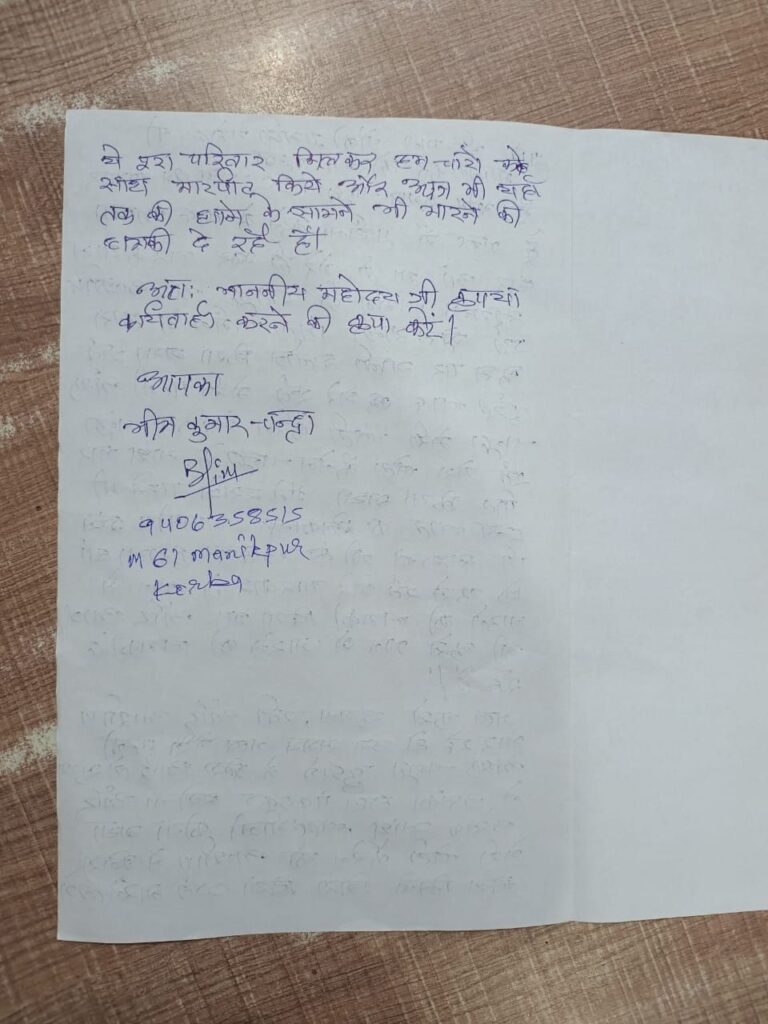 ये पूरा परिवार मिलकर हम चारो के
साथ मारपीट किये और अब भी यहाँ
तक की थाने के सामने भी मारने की
धमकी दे रहे है।
अतः माननीय महोदय जी कृपया
कार्यवाही करने की कृपा करें।
आपका
भीम कुमार चन्द्रा
Bhim
9406358515
M 67 manikpur
Korba